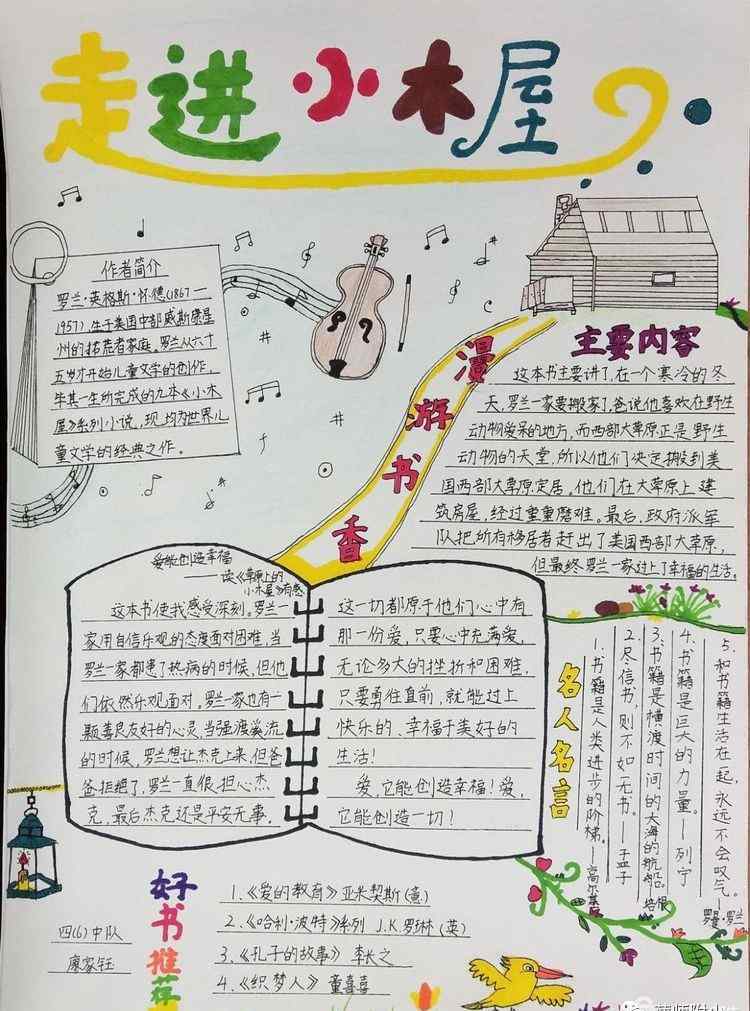 走进小木屋
作者简介
罗兰·英格斯·怀德(1867—
1957),生于美国中部威斯康星
州的拓荒者家庭。罗兰从六十
五岁才开始儿童文学的创作,
毕其一生所完成的九本《小木
屋》系列小说,现均为世界儿
童文学的经典之作。
漫游书香
主要内容
这本书主要讲了,在一个寒冷的冬
天,罗兰一家要搬家了,爸说他喜欢在野生
动物爱呆的地方,而西部大草原正是野生
动物的天堂,所以他们决定搬到美
国西部大草原定居。他们在大草原上建
筑房屋,经过重重磨难。最后,政府派军
队把所有移居者赶出了美国西部大草原,
但最终罗兰一家过上了幸福的生活。
爱能创造幸福
——读《草原上的
小木屋》有感
这本书使我感受深刻。罗兰一
家用自信乐观的态度面对困难,当
罗兰一家都患了热病的时候,但他
们依然乐观面对,罗兰一家也有一
颗善良友好的心灵,当强渡溪流
的时候,罗兰想让杰克上来,但爸
爸拒绝了,罗兰一直很担心杰
克,最后杰克还是平安无事。
这一切都原于他们心中有
那一份爱,只要心中充满爱,
无论多大的挫折和困难,
只要勇往直前,就能过上
快乐的、幸福于美好的
生活!
爱,它能创造幸福!爱,
它能创造一切!
名人名言
1、书籍是人类进步的阶梯。—高尔基
2、尽信书,则不如无书。—孟子
3、书籍是横渡时间的大海的航船。培根
4、书籍是巨大的力量。—列宁
5、和书籍生活在一起,永远不会叹气。—罗曼·罗兰
好书推荐
1.《爱的教育》亚米契斯(意)
2.《哈利·波特》系列 J.K.罗琳(英)
3.《孔子的故事》李长之
4.《织梦人》童喜喜
四(6)中队
廖家钰